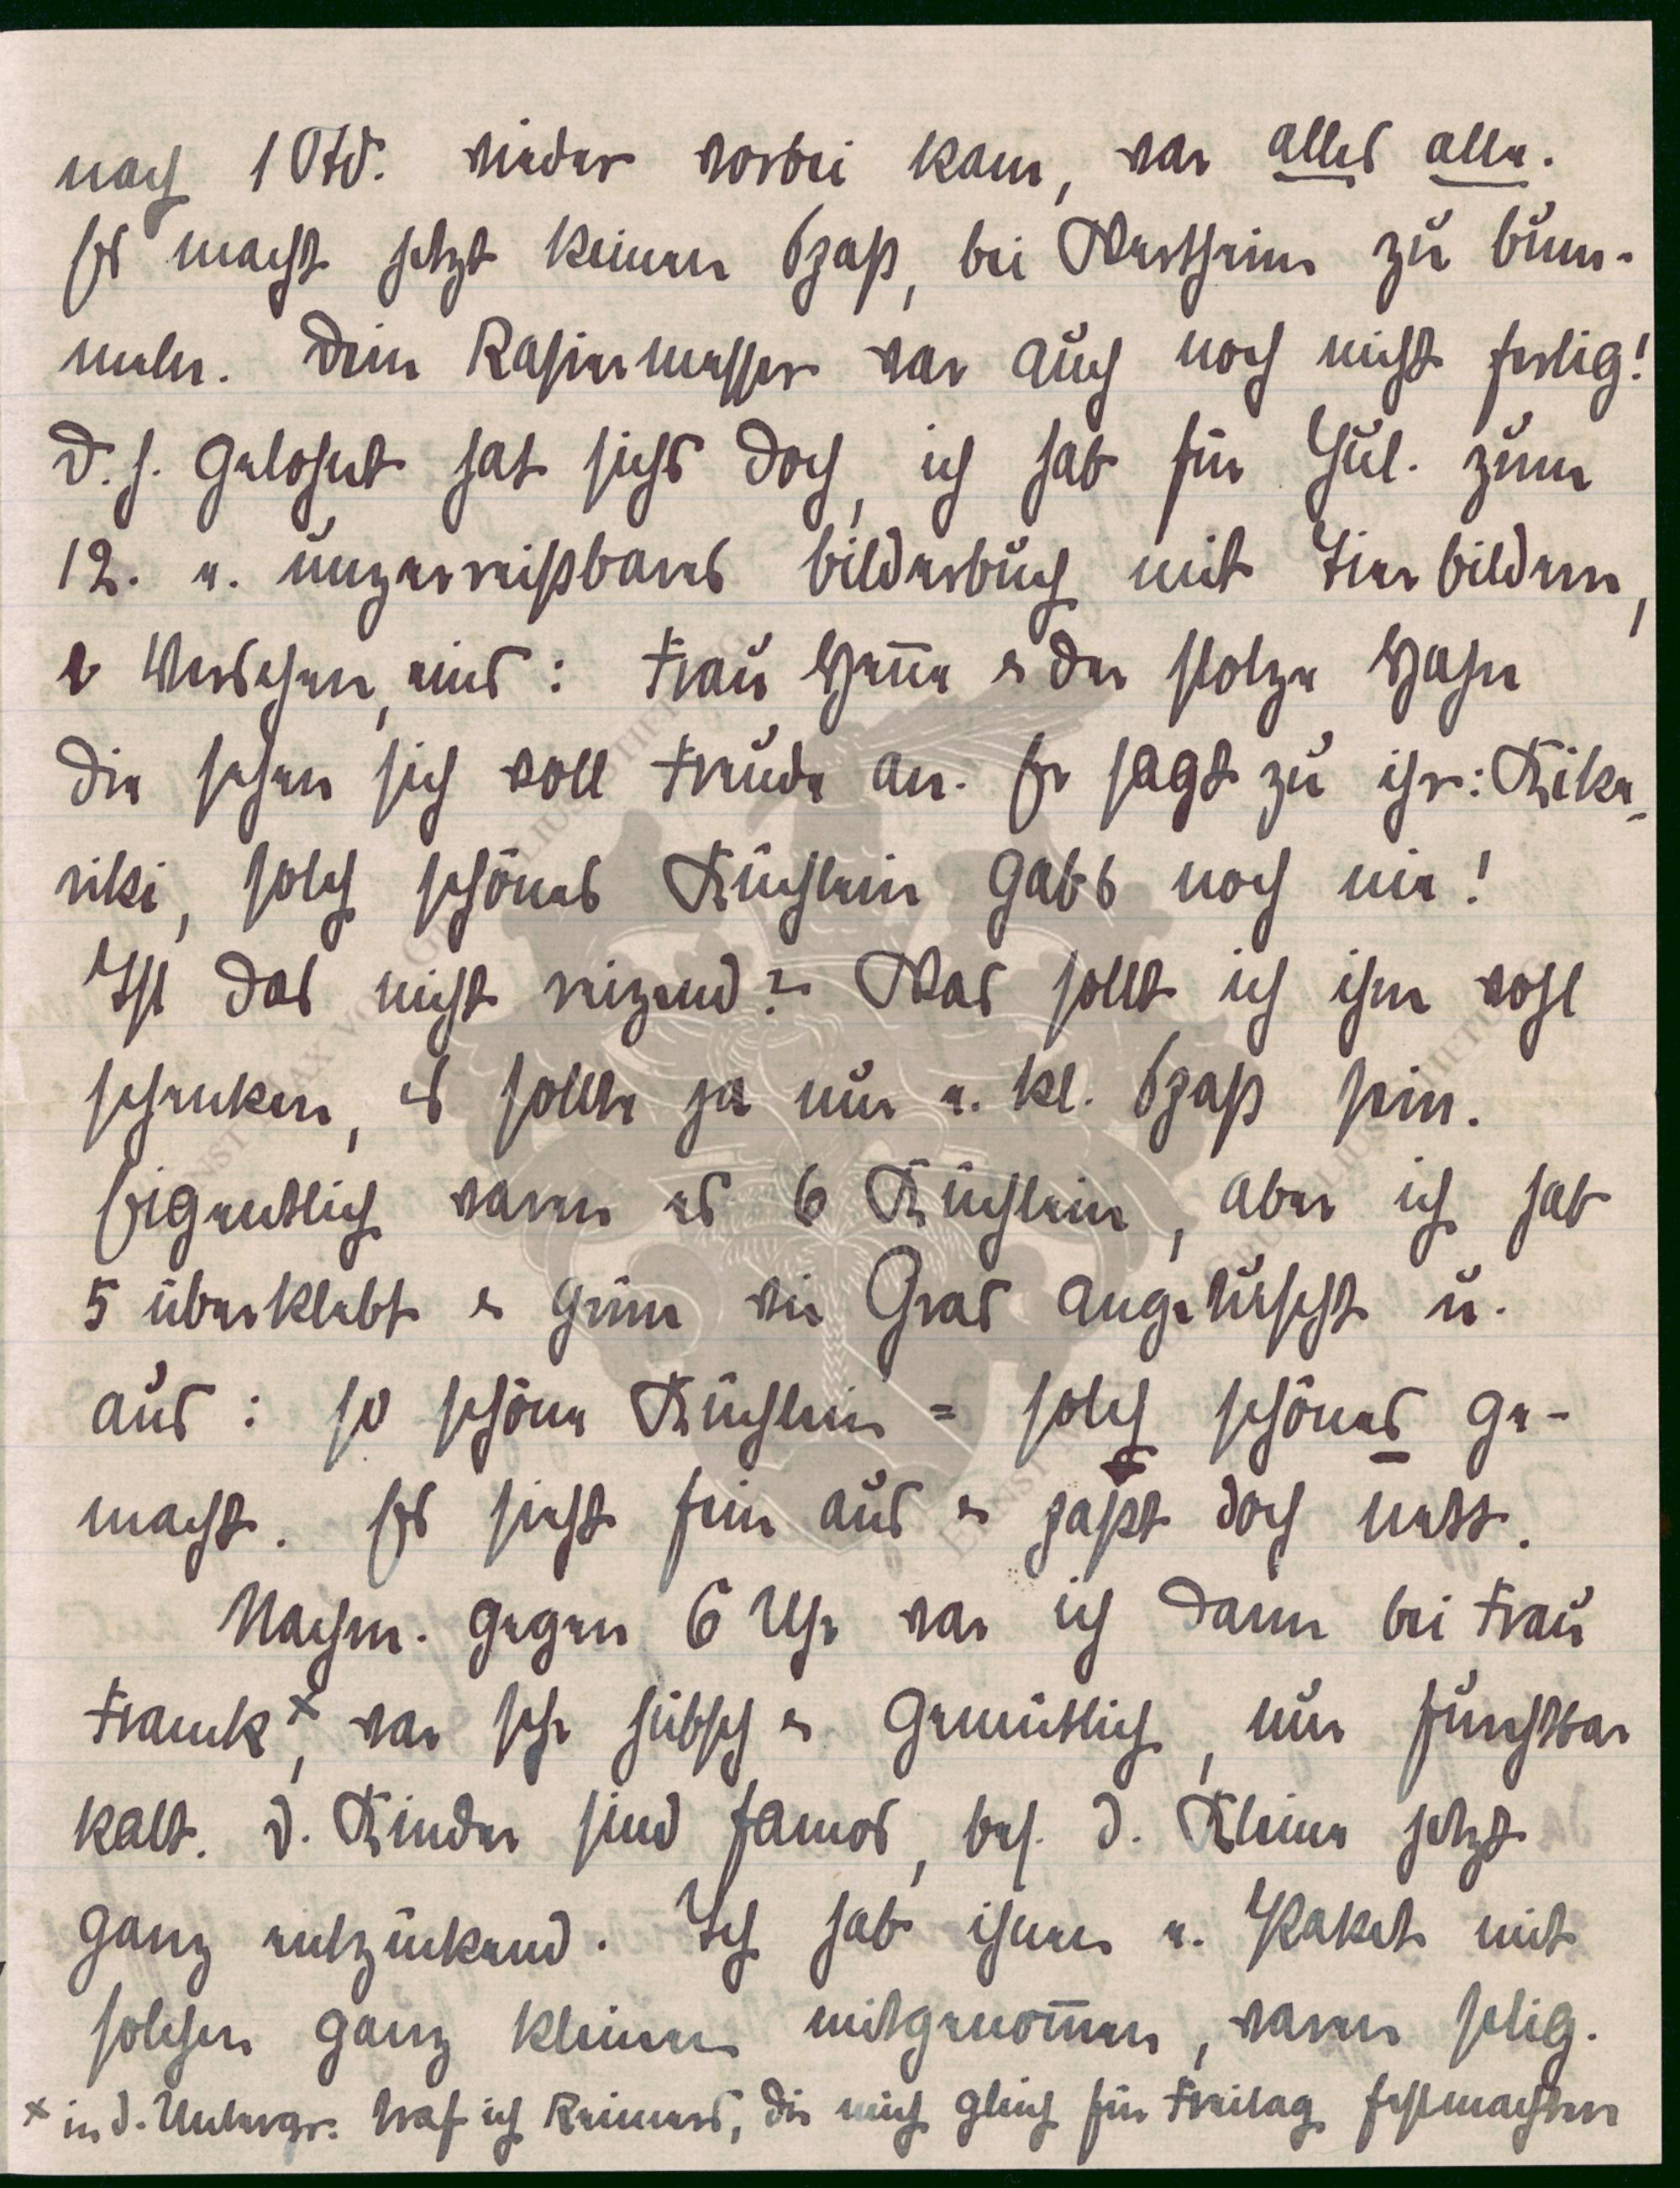 nach 1 Std. wieder vorbei kam, war alles alle.
Es macht jetzt keinen Spaß, bei Wertheim zu bum-
meln. Dein Rasiermesser war auch noch nicht fertig!
D. h. gelohnt hat sichs doch, ich hab für Jul. zum
12. e. unzerreißbares Bilderbuch mit Tierbildern,
& Verschen, eins: Frau Henne & der stolze Hahn
die sehen sich voll Freude an. Er sagt zu ihr: Kike-
riki, solch schönes Küchlein gabs noch nie!
Ist das nicht reizend? Was sollt ich ihm wohl
schenken, es sollte ja nur e. kl. Spaß sein.
Eigentlich waren es 6 Küchlein, aber ich hab
5 überklebt & grün wie Gras angetuscht u.
aus: so schöne Küchlein = solch schönes ge-
macht. Es sieht fein aus & paßt doch nett.
Nachm. gegen 6 Uhr war ich dann bei Frau
Franck ×, war sehr hübsch & gemütlich, nur furchtbar
kalt. D. Kinder sind famos, bes. d. Kleine jetzt
ganz entzückend. Ich hab ihnen e. Paket mit
solchen ganz kleinen mitgenom̄en, waren selig.
× in d. Untergr. traf ich Reimers, die mich gleich für Freitag festmachten
ERNST MAX VON GRUNELIUS STIFTUNG